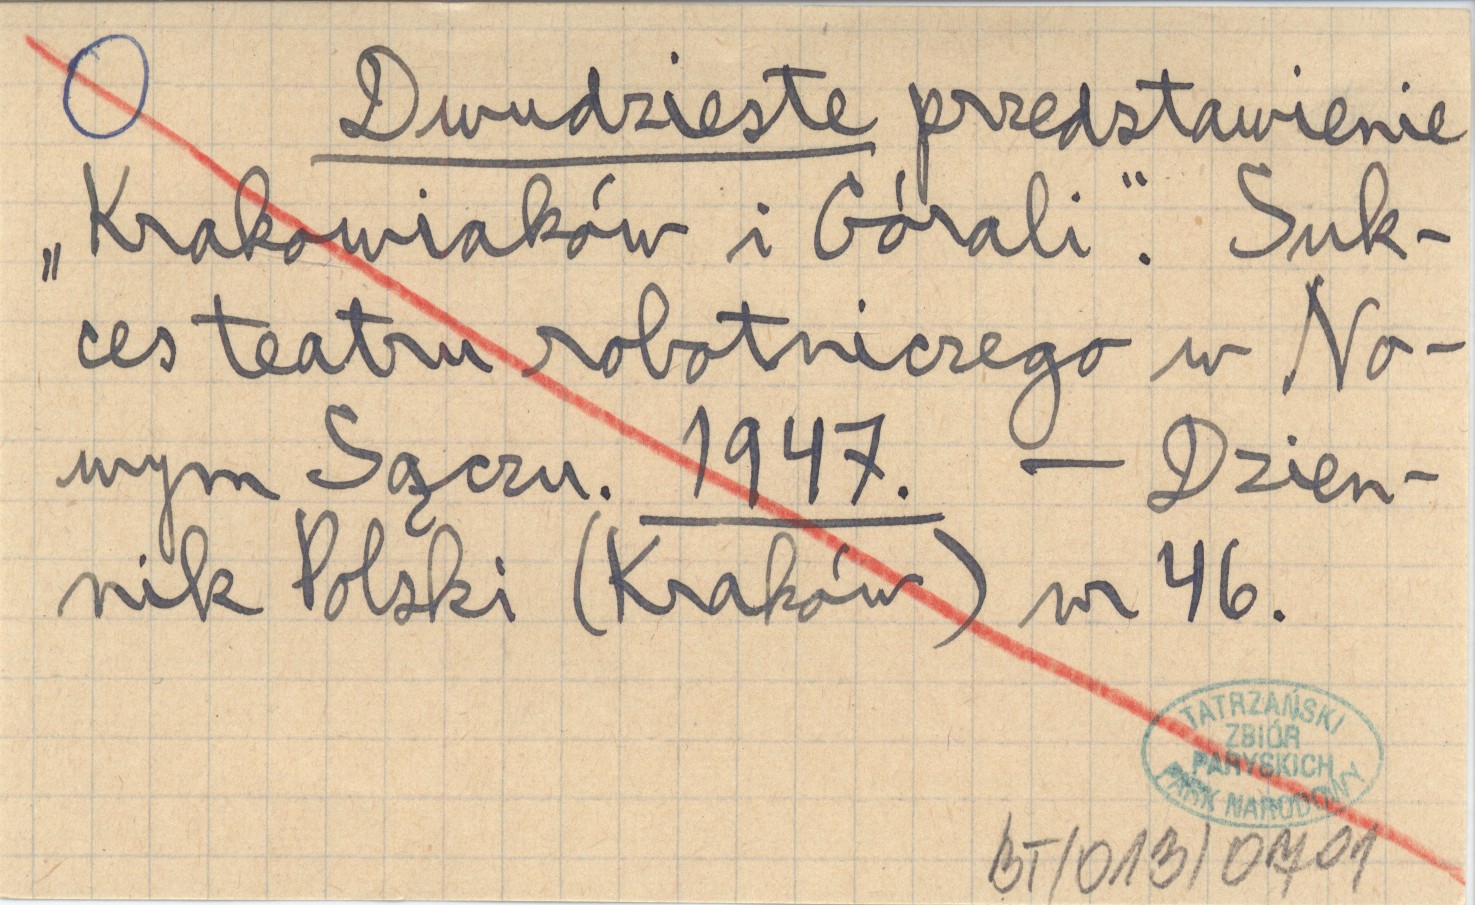 Dwudzieste przedstawienie
„Krakowiaków i Górali”. Suk-
ces teatru robotniczego w No-
wym Sączu. 1947. — Dzien-
nik Polski (Kraków) nr 46.
TATRZAŃSKI
ZBIÓR
PARYSKICH
PARK NARODOWY
BT/013/0701